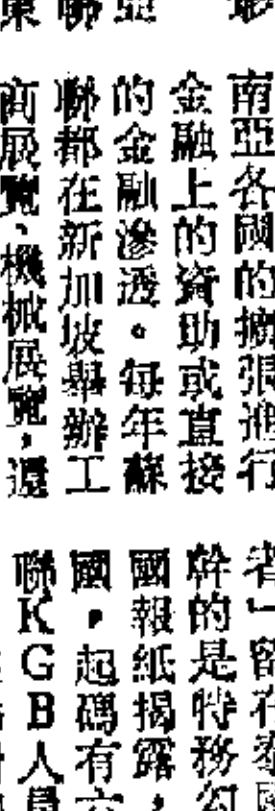 南亞各國的擴張進行
金融上的資助或直接
的金融滲透。每年蘇
聯都在新加坡舉辦工
商展覽、機械展覽，還
者」留在泰國
幹的是特務勾
國報紙揭露，
國，起碼有六
聯KGB人員